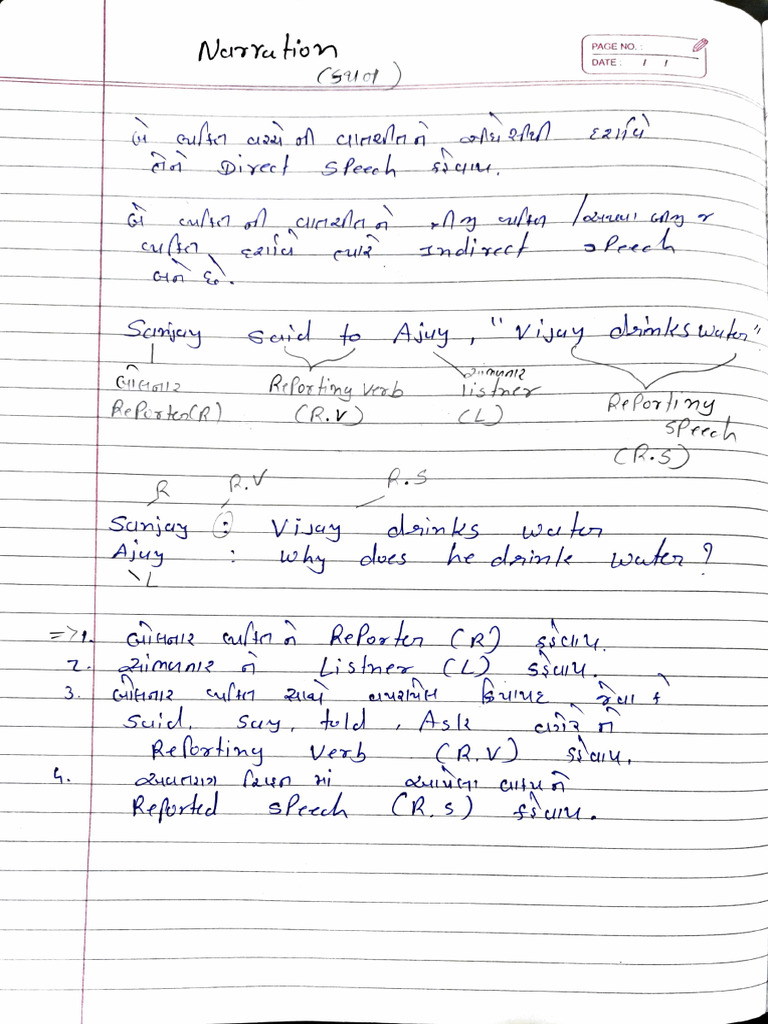 Narration
(કથન)
PAGE NO. :
DATE : / /
બે વ્યક્તિ વચ્ચે ની વાતચીતને સીધેસીધી દર્શાવે
તેને Direct Speech કહેવાય.
બે વ્યક્તિ ની વાતચીત ને ત્રીજી વ્યક્તિ / અથવા બીજી જ
વ્યક્તિ દર્શાવે ત્યારે Indirect speech
બને છે.
Sanjay said to Ajay, "Vijay drinks water"
બોલનાર Reporting verb સાંભળનાર
Reporter(R) (R.V) listner (L) Reporting speech (R.S)
R R.V R.S
Sanjay : Vijay drinks water
Ajay : why does he drink water?
L
=> 1. બોલનાર વ્યક્તિ ને Reporter (R) કહેવાય.
2. સાંભળનાર ને Listner (L) કહેવાય.
3. બોલનાર વ્યક્તિ સાથે વપરાયેલ ક્રિયાપદ જેવા કે
said, say, told, Ask વગેરે ને
Reporting Verb (R.V) કહેવાય.
4. અવતરણ ચિહ્ન માં આપેલા વાક્ય ને
Reported speech (R.S) કહેવાય.